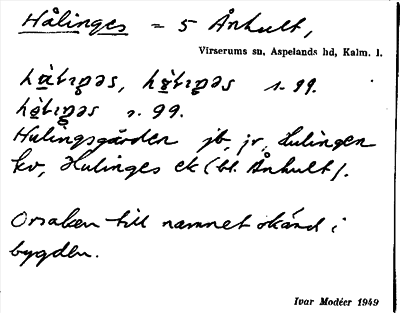 Hålinges = 5 Ånhult,
Virserums sn, Aspelands hd, Kalm. l.
s. 99.
s. 99.
Hulingsgården jb, jr, Hulingen
kv, Hulinges ek (bl. Ånhult).
Orsaken till namnet okänd i
bygden.
Ivar Modéer 1949